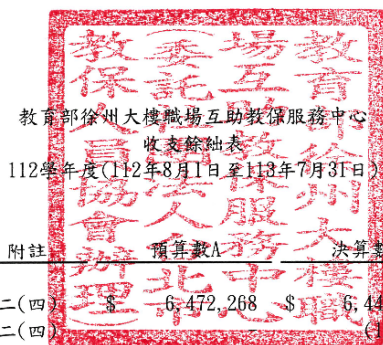 教育部徐州大樓職場互助教保服務中心
收支餘絀表
112學年度(112年8月1日至113年7月31日)
附註 預算數A 決算數
二(四) $ 6,472,268 $ 6,44
二(四) (1
教育部徐州大樓職
場互助教保服務中心
(委託 法人 北市
教保人員協會辦理)